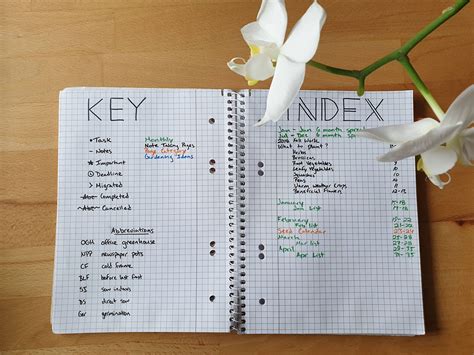 KEY
• Task Monthly
- Notes Note Taking Pages
* Important Page Category
Deadline Gardening Ideas
> Migrated
Completed
Cancelled
Abbreviations
OGH office greenhouse
NPP newspaper pots
CF cold frame
BLF before last frost
SS sow indoors
DS direct sow
Ger germination
INDEX
Jan - Jun 6 month spread
Jul - Dec 6 month
What to plant?
Herbs
Brassicas
Root Vegetables
Leafy Vegetables
Squashes
Peas
Warm Weather Crops
Beneficial Flowers
January
Jan List
February
Feb list
Seed Calendar 23-24
March
Mar list
April
Apr list